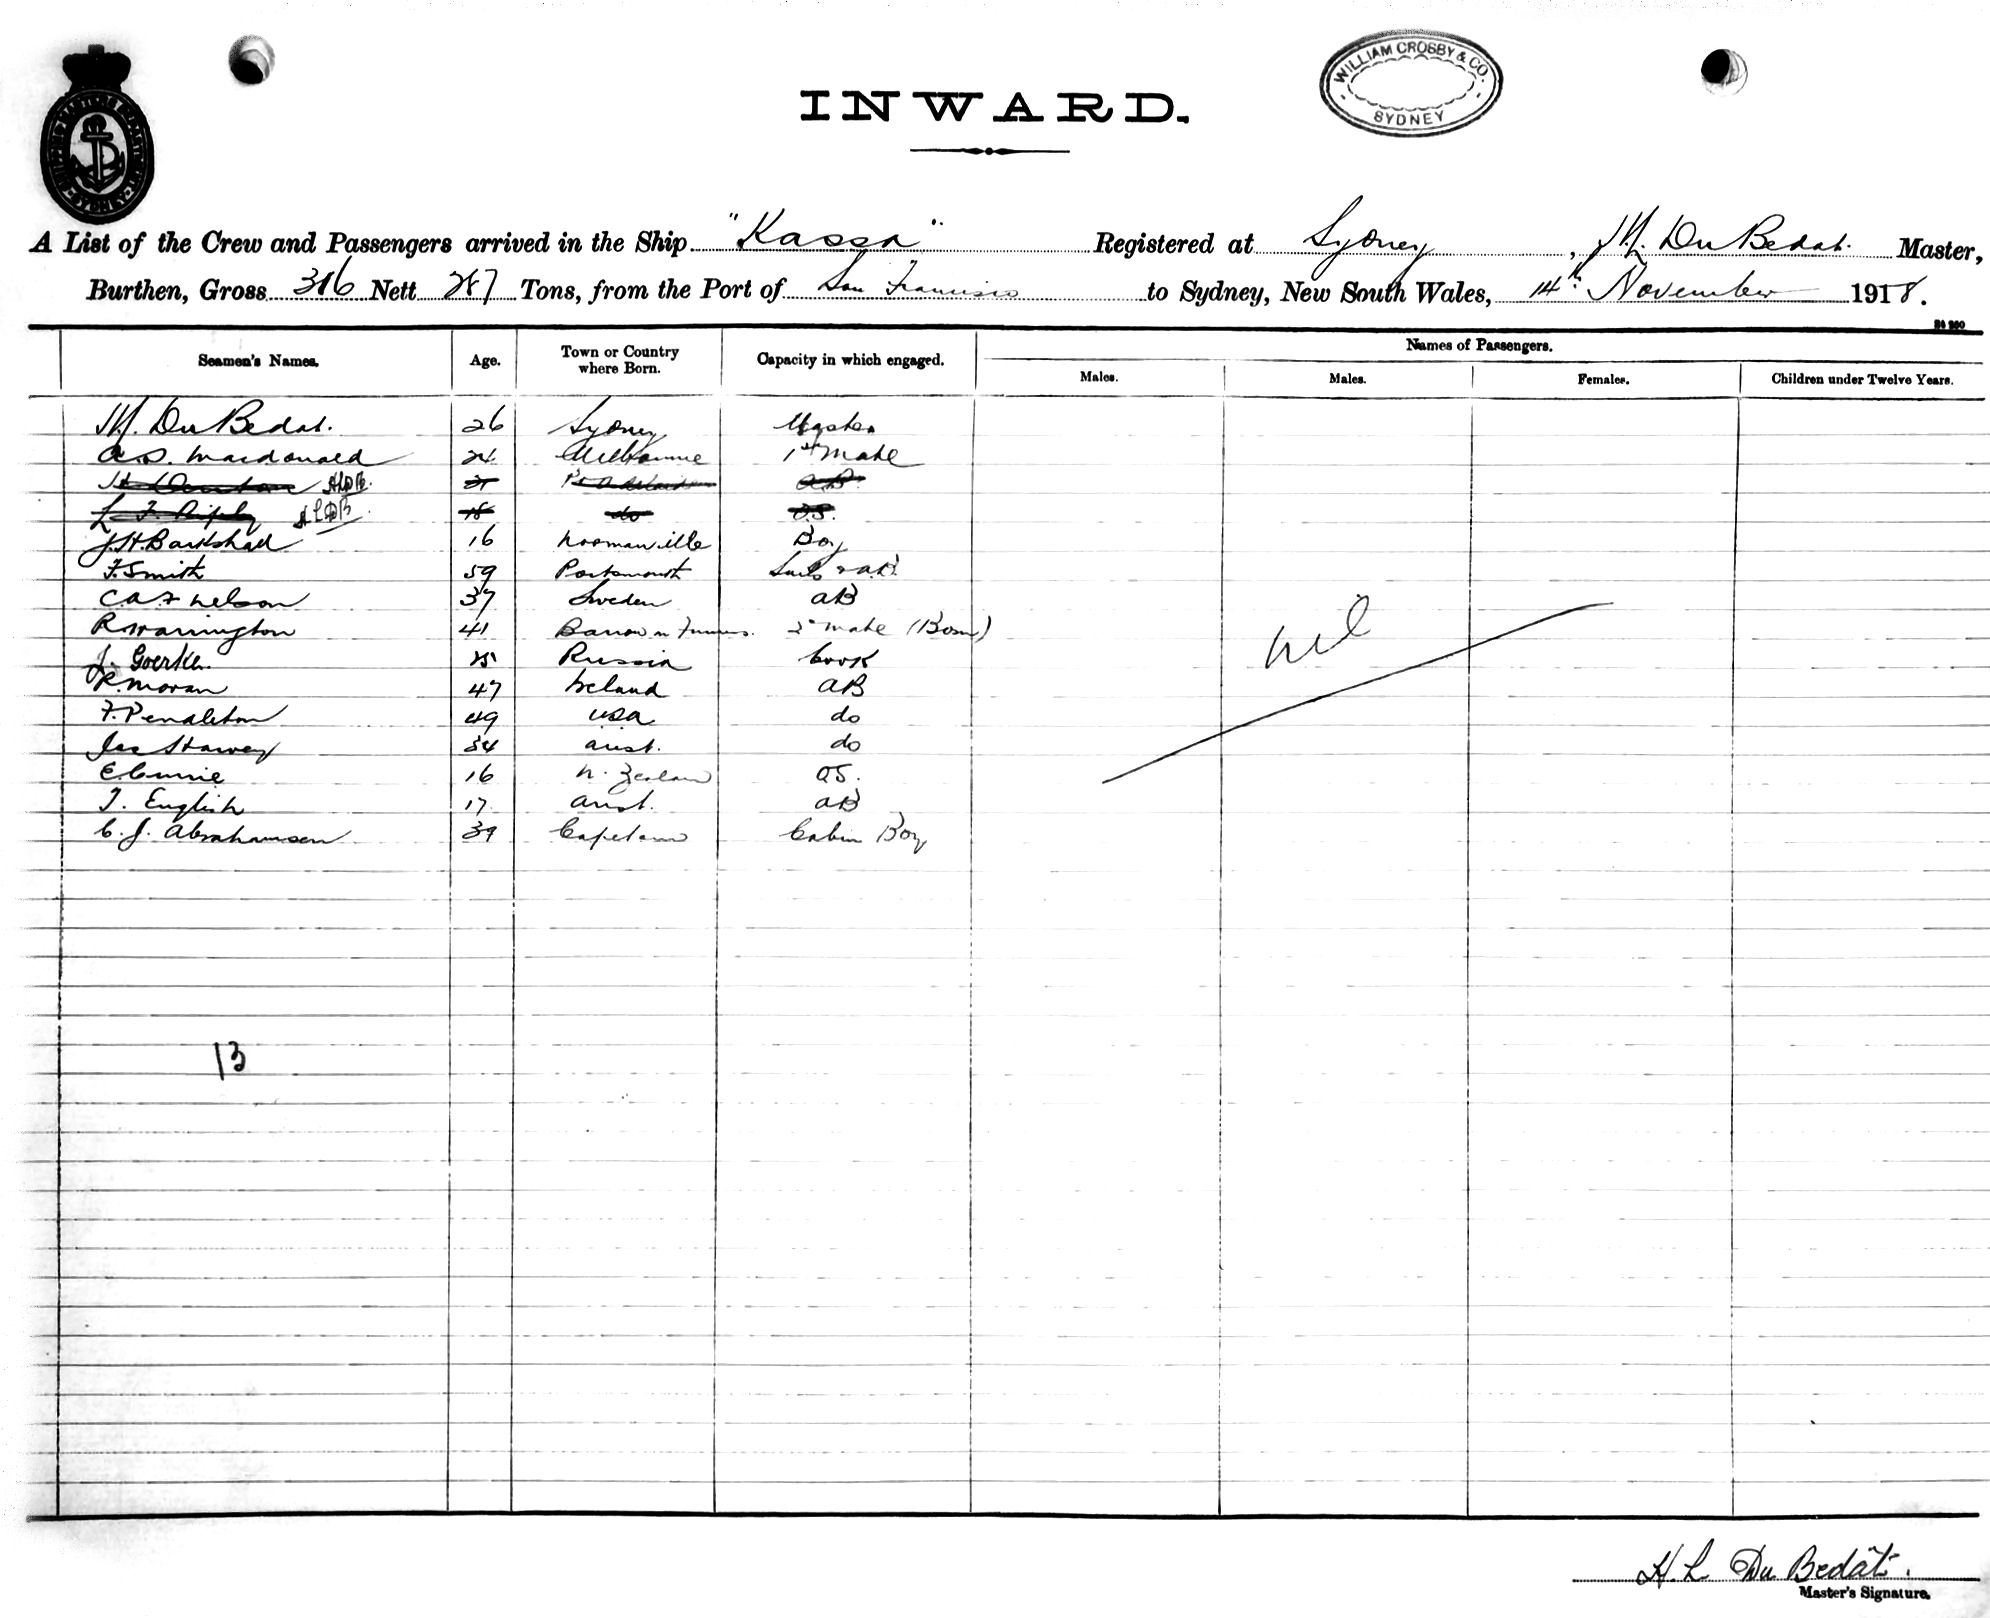 INWARD.
WILLIAM CROSBY & CO.
SYDNEY
A List of the Crew and Passengers arrived in the Ship "Kassa" Registered at Sydney, H. L. Du Bedat. Master,
Burthen, Gross 316 Nett 287 Tons, from the Port of San Francisco to Sydney, New South Wales, 14th November 1918.
Names of Passengers.
Seamen's Names. Age. Town or Country where Born. Capacity in which engaged. Males. Males. Females. Children under Twelve Years.
Du Bedat. 26 Sydney Master
Macdonald 24 Melbourne 1st Mate
HLDB.
L. F. Ripley HLDB 18 do O.S.
J. H. Barkshall 16 Normanville Boy
F. Smith 59 Portsmouth Sails & AB
C A F Nelson 37 Sweden AB
R Warrington 41 Barrow in Furness. 2nd Mate (Bosn)
J. Goerke. 25 Russia Cook
R. Moran 47 Ireland AB
F. Pendleton 49 USA do
Jas Harvey 34 Aust. do
E Currie 16 N. Zealand OS.
T. English 17 Aust. AB
C. J. Abrahamsen 39 Capetown Cabin Boy
Nil
13
H. L. Du Bedat.
Master's Signature.